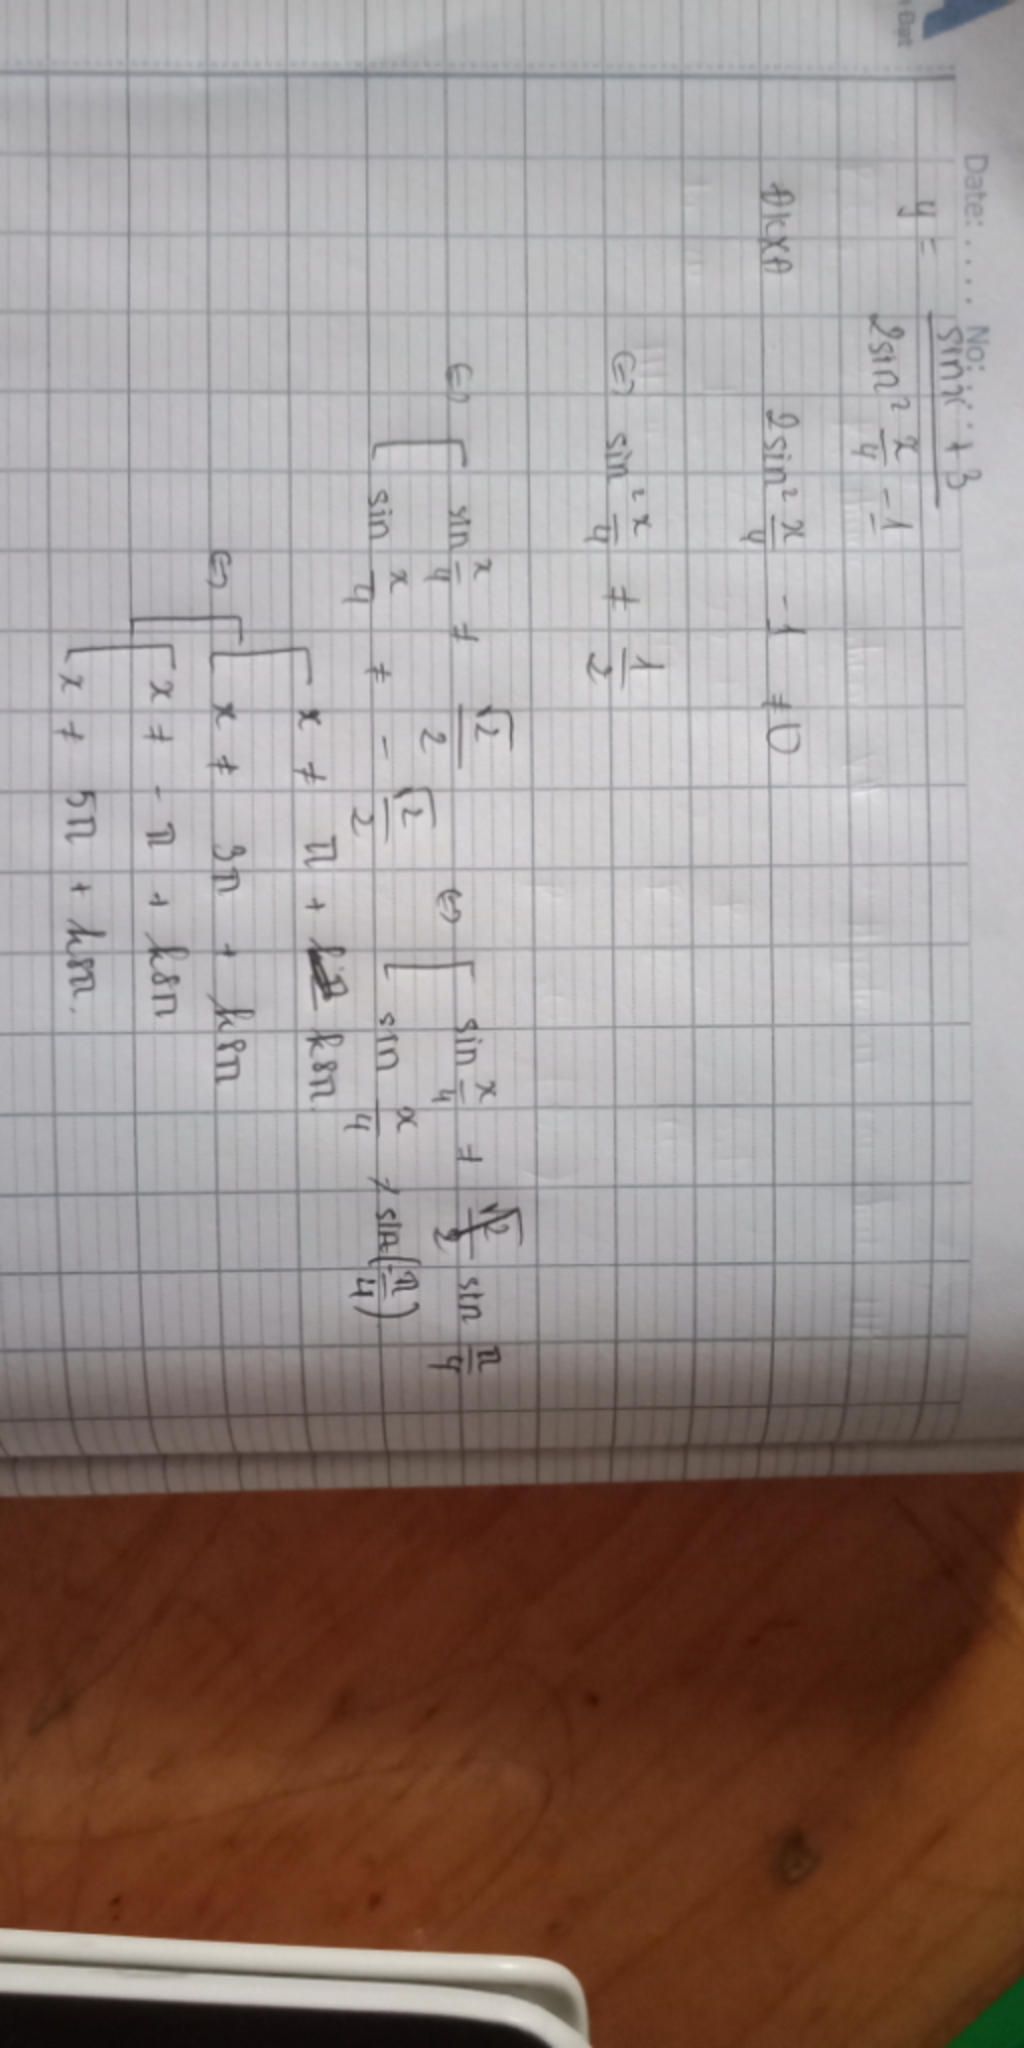 Date: .... No:
y = \frac{sinx + 3}{2sin² \frac{x}{4} - 1}
ĐKXĐ 2sin² \frac{x}{4} - 1 ≠ 0
⇔ sin² \frac{x}{4} ≠ \frac{1}{2}
⇔ [ sin \frac{x}{4} ≠ \frac{√2}{2} ⇔ [ sin \frac{x}{4} ≠ sin \frac{π}{4}
sin \frac{x}{4} ≠ - \frac{√2}{2} sin \frac{x}{4} ≠ sin(-\frac{π}{4})
[ x ≠ π + k8π.
⇔ [ x ≠ 3π + k8π
[ x ≠ -π + k8π
x ≠ 5π + k8π.